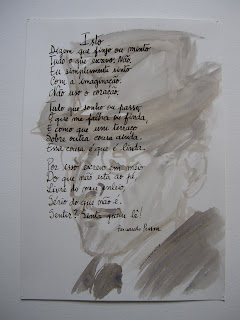 Isto
Dizem que finjo ou minto
Tudo o que escrevo. Não.
Eu simplesmente sinto
Com a imaginação.
Não uso o coração.
Tudo o que sonho ou passo,
O que me falha ou finda,
É como que um terraço
Sobre outra coisa ainda.
Essa coisa é que é linda.
Por isso escrevo em meio
Do que não está ao pé,
Livre do meu enleio,
Sério do que não é.
Sentir? Sinta quem lê!
Fernando Pessoa